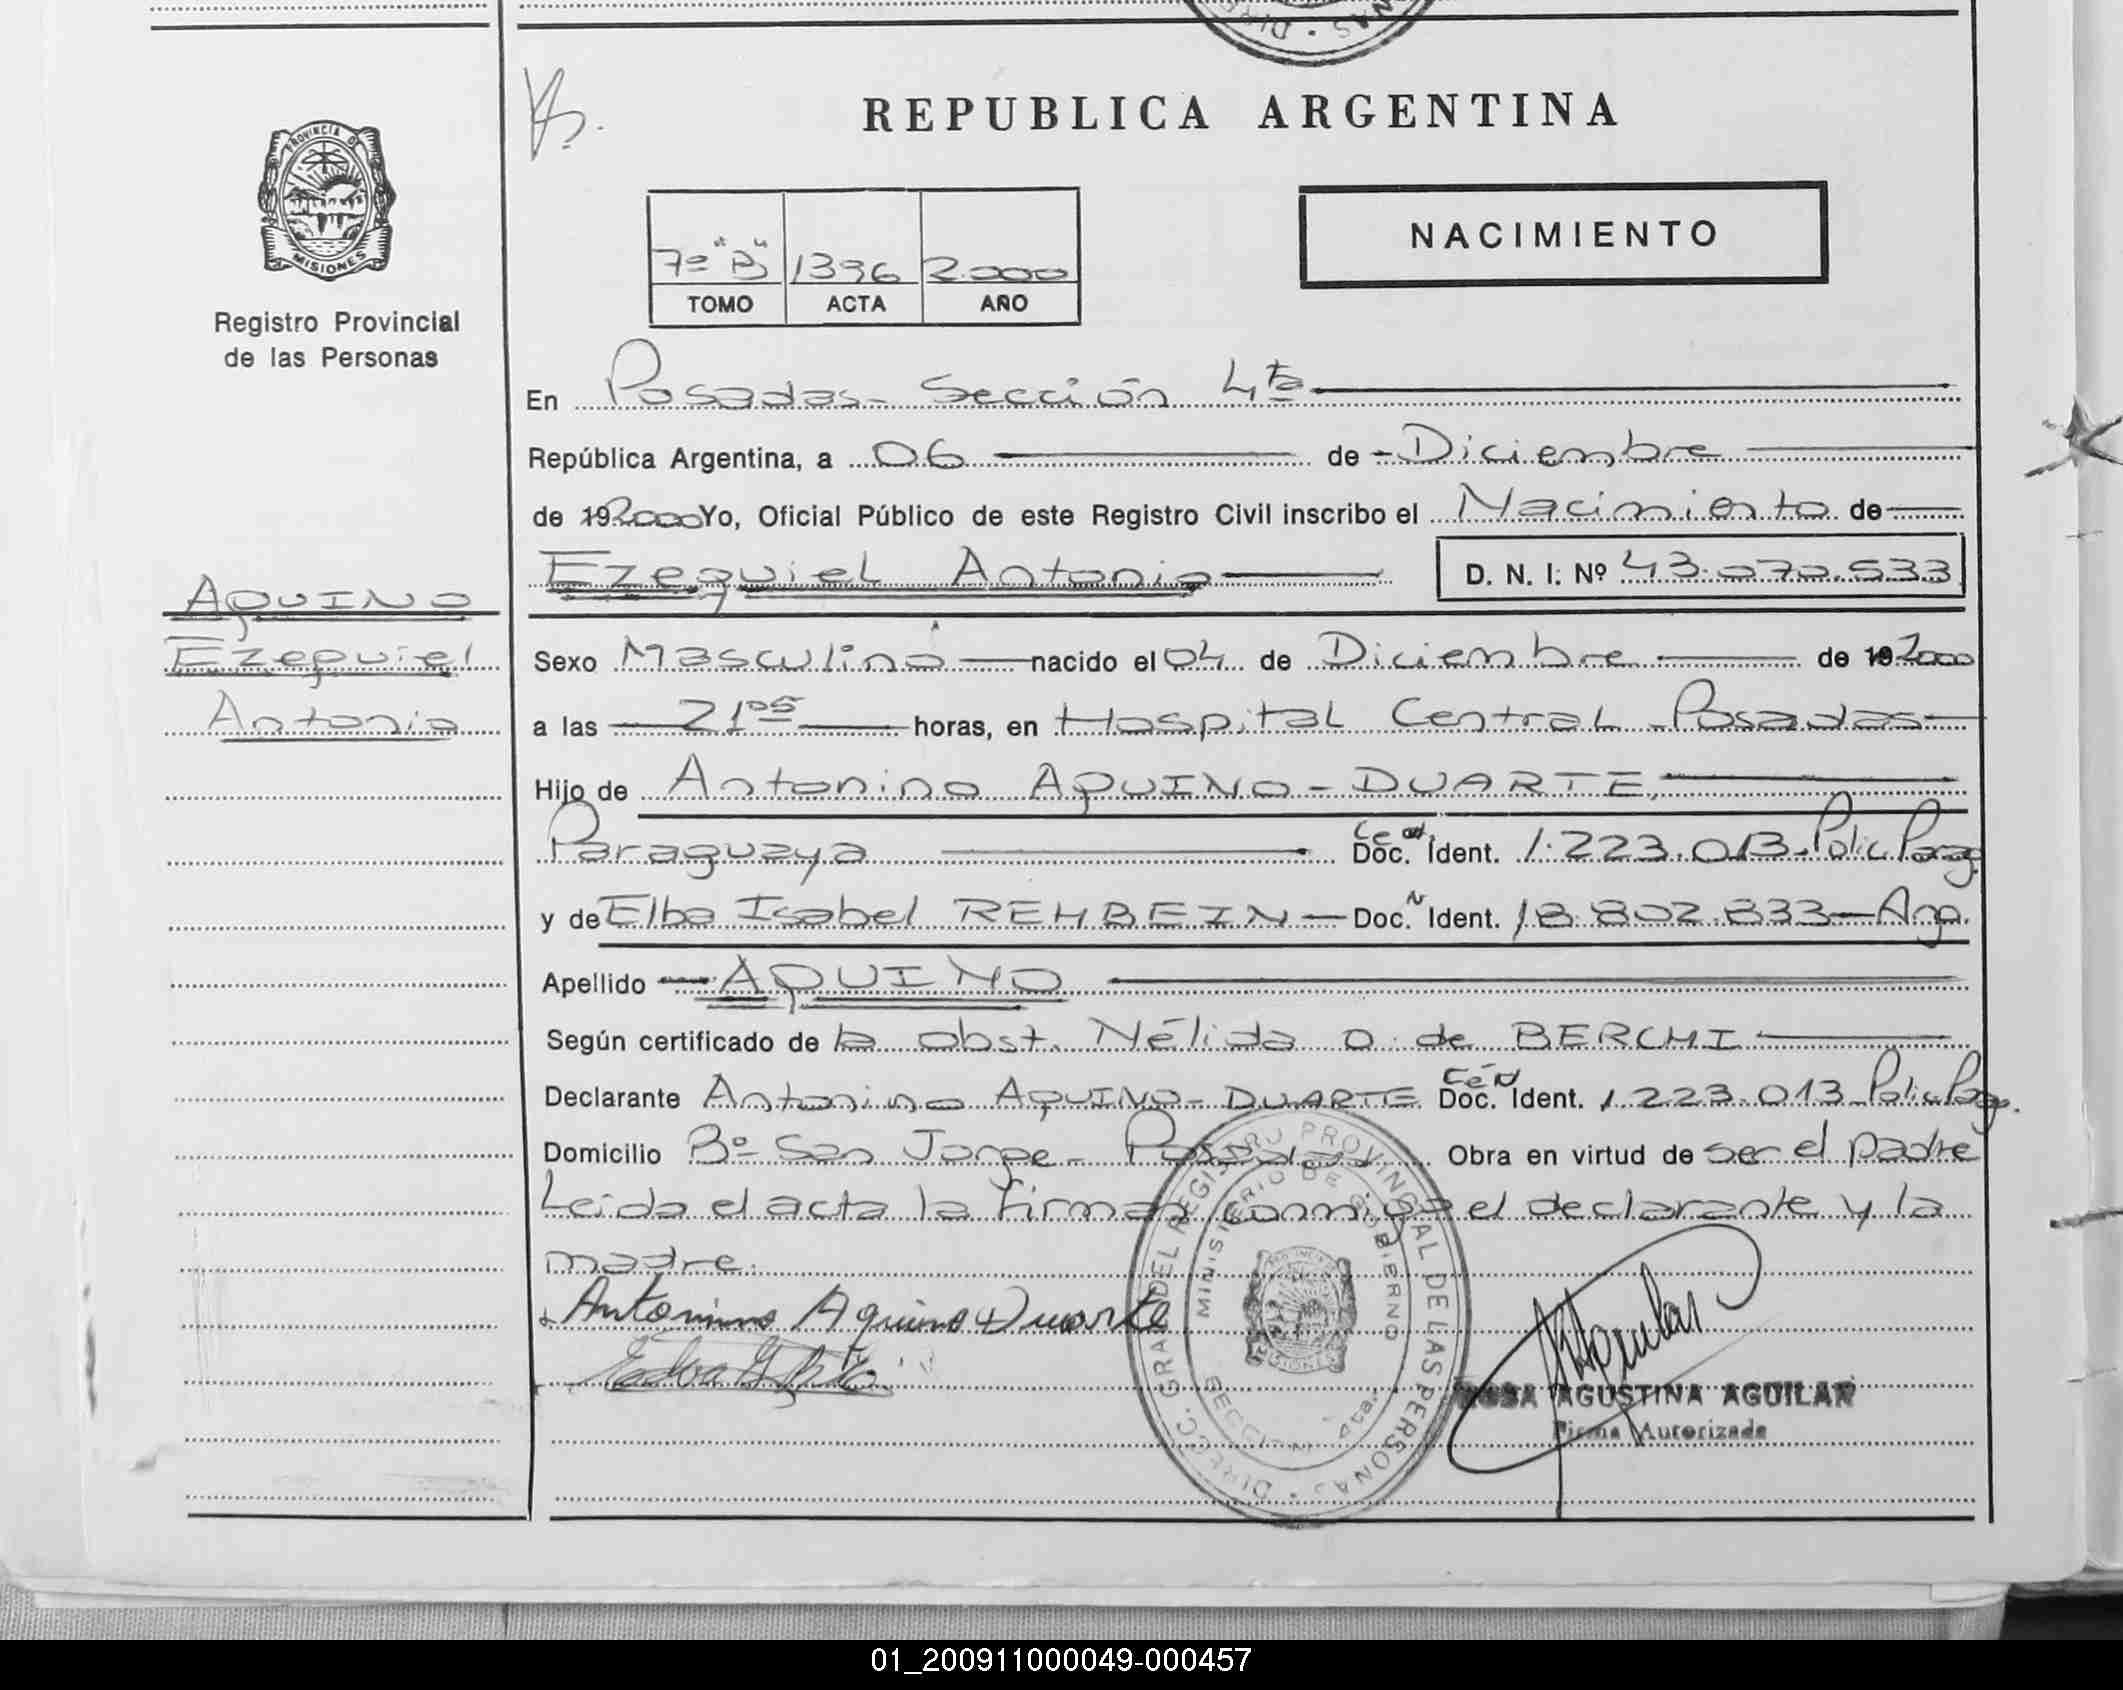 REPUBLICA ARGENTINA
PROVINCIA DE
MISIONES
Registro Provincial
de las Personas
NACIMIENTO
7º "B" 1396 2.000
TOMO ACTA AÑO
En Posadas - Sección 4ta
República Argentina, a 06 de Diciembre
de 192000 Yo, Oficial Público de este Registro Civil inscribo el Nacimiento de
Ezequiel Antonio D. N. I. Nº 43.070.533
AQUINO
Ezequiel
Antonio
Sexo Masculino nacido el 04 de Diciembre de 192000
a las 21 05 horas, en Hospital Central - Posadas
Hijo de Antonino AQUINO - DUARTE,
Paraguaya Ced. Doc. Ident. 1.223.013 - Polic. Parag.
y de Elba Isabel REHBEIN - Doc. N Ident. 18.802.833 - Arg.
Apellido AQUINO
Según certificado de la obst. Nélida O. de BERCHI
Declarante Antonino AQUINO - DUARTE Céd Doc. Ident. 1.223.013 - Polic. Parag.
Domicilio Bº San Jorge - Posadas Obra en virtud de ser el padre
Leida el acta la firman conmigo el declarante y la
madre.
Antonino Aquino Duarte
DIRECC. GRAL DEL REGISTRO PROVINCIAL DE LAS PERSONAS
MINISTERIO DE GOBIERNO
SECCION 4ta.
ROSA AGUSTINA AGUILAR
Firma Autorizada
01_200911000049-000457